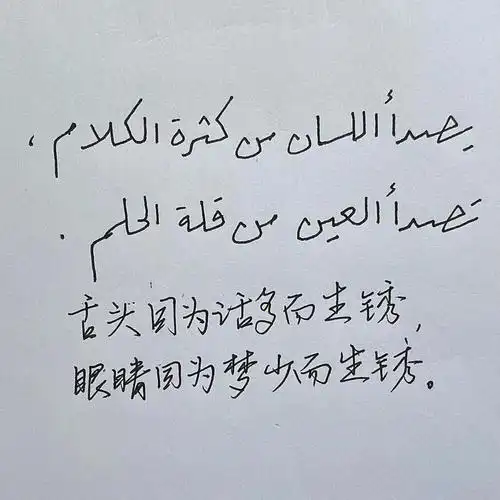 يصدأ اللسان من كثرة الكلام،
تصدأ العين من قلة الحلم.
舌头因为话多而生锈,
眼睛因为梦少而生锈。